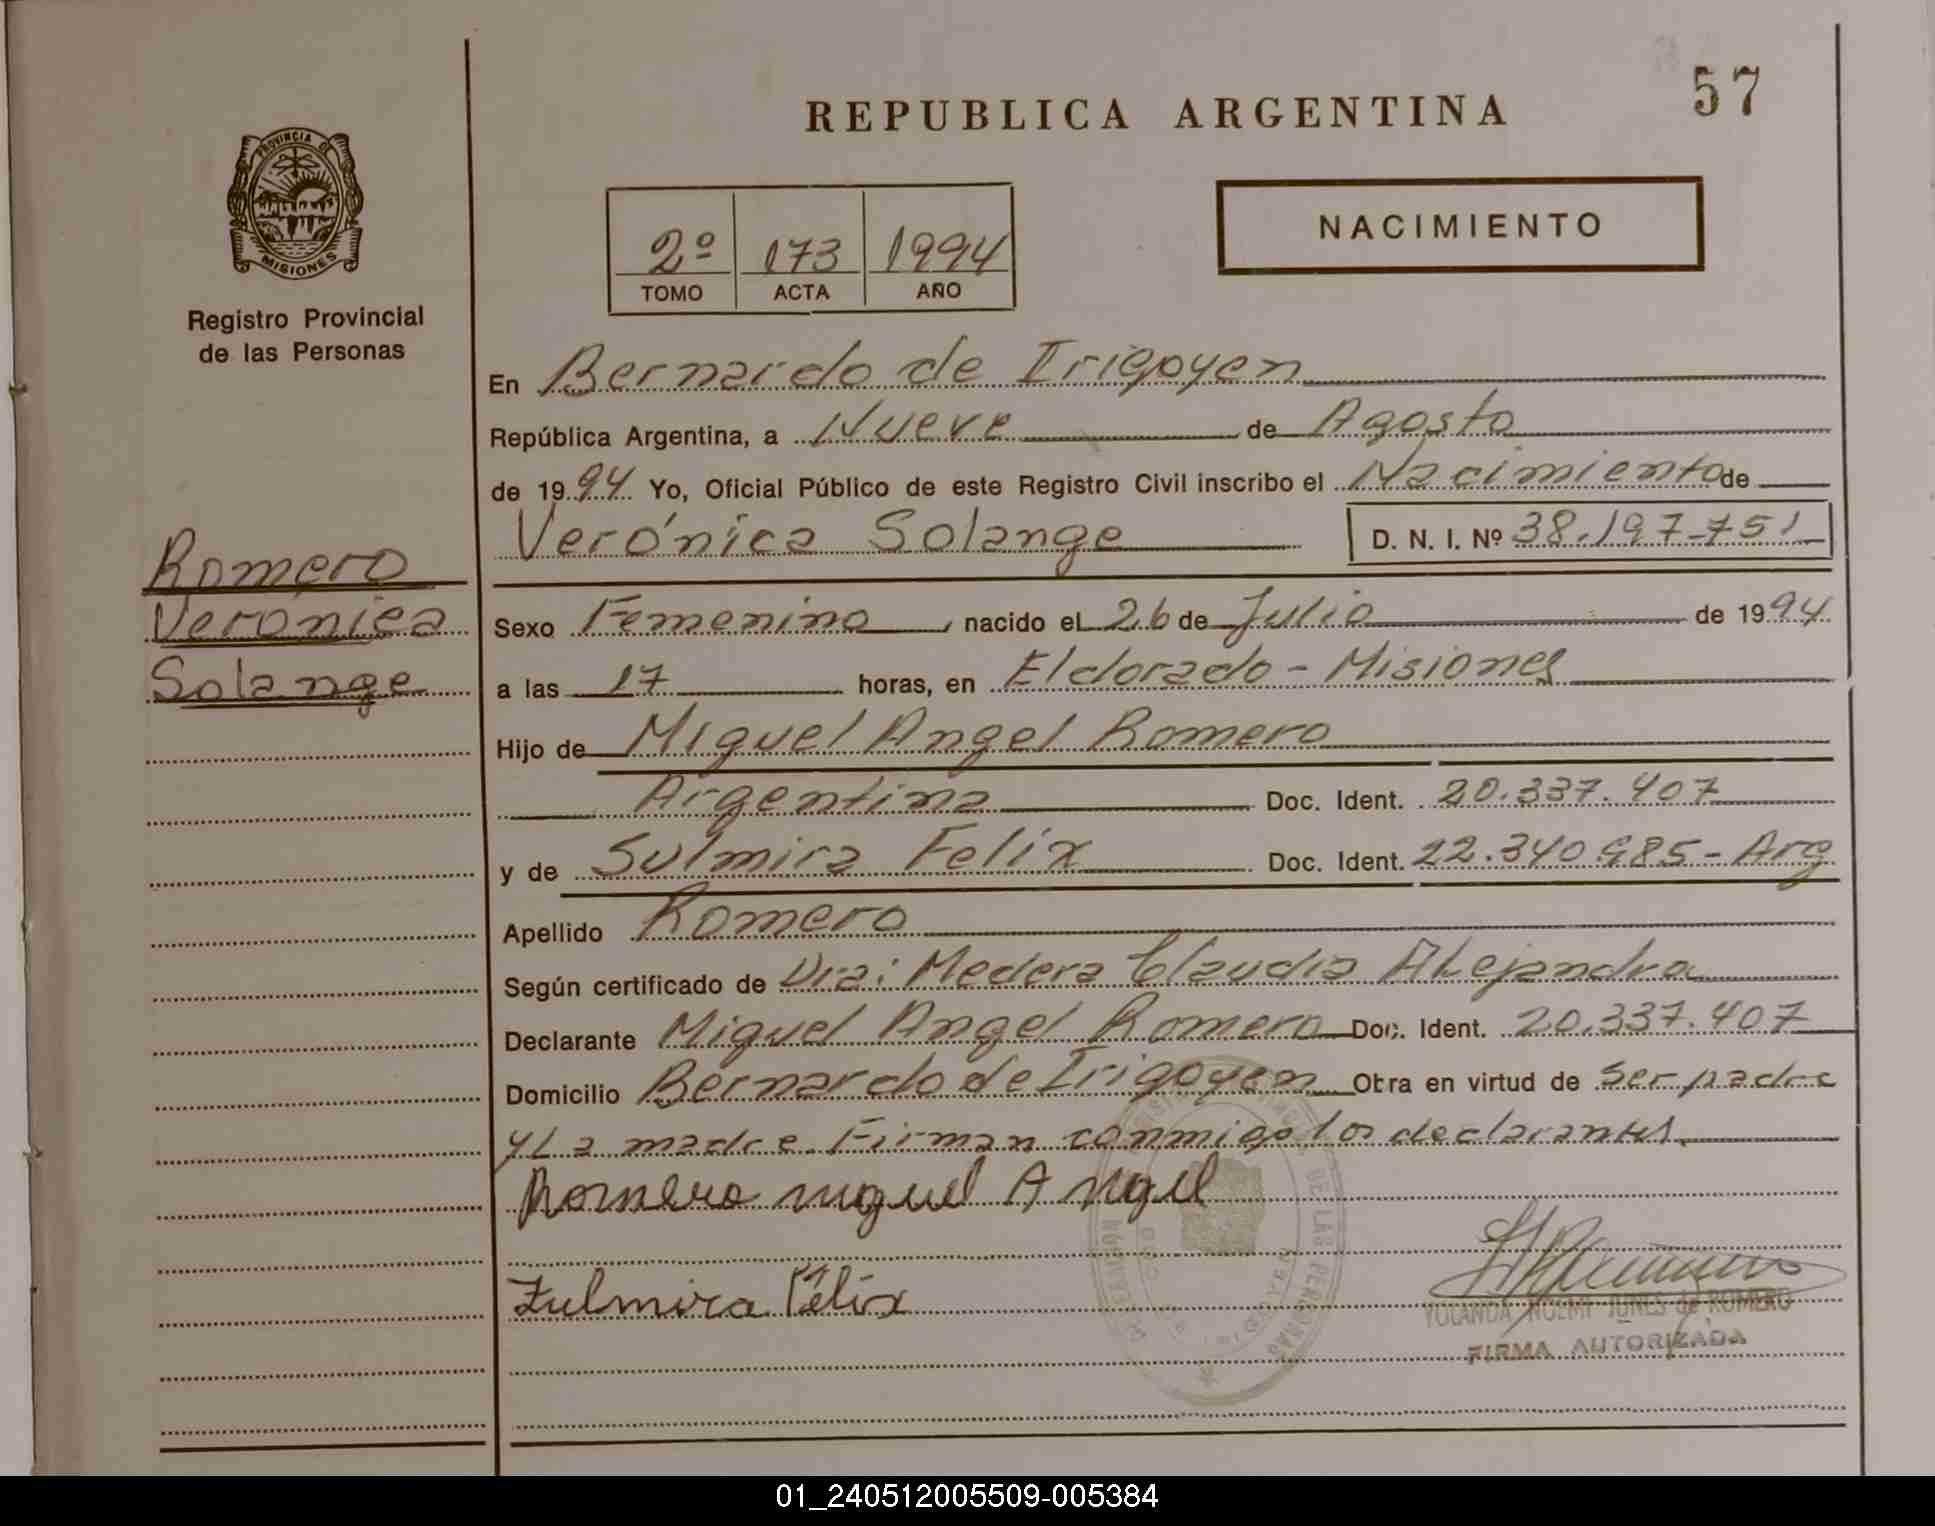 57
REPUBLICA ARGENTINA
PROVINCIA DE
MISIONES
Registro Provincial
de las Personas
NACIMIENTO
2º 173 1994
TOMO ACTA AÑO
En Bernardo de Irigoyen
República Argentina, a Nueve de Agosto
de 1994 Yo, Oficial Público de este Registro Civil inscribo el Nacimiento de
Verónica Solange D. N. I. Nº 38.197.751
Romero
Verónica
Solange
Sexo Femenino, nacido el 26 de Julio de 1994
a las 17 horas, en Eldorado - Misiones
Hijo de Miguel Angel Romero
Argentina Doc. Ident. 20.337.407
y de Sulmira Felix Doc. Ident. 22.340.985 - Arg
Apellido Romero
Según certificado de Dra: Medera Claudia Alejandra
Declarante Miguel Angel Romero Doc. Ident. 20.337.407
Domicilio Bernardo de Irigoyen Obra en virtud de ser padre
y La madre. Firman conmigo los declarantes.
Romero miguel Angel
Zulmira Félix
YOLANDA NOEMI JUNES de ROMERO
FIRMA AUTORIZADA
DE LAS PERSONAS
01_240512005509-005384